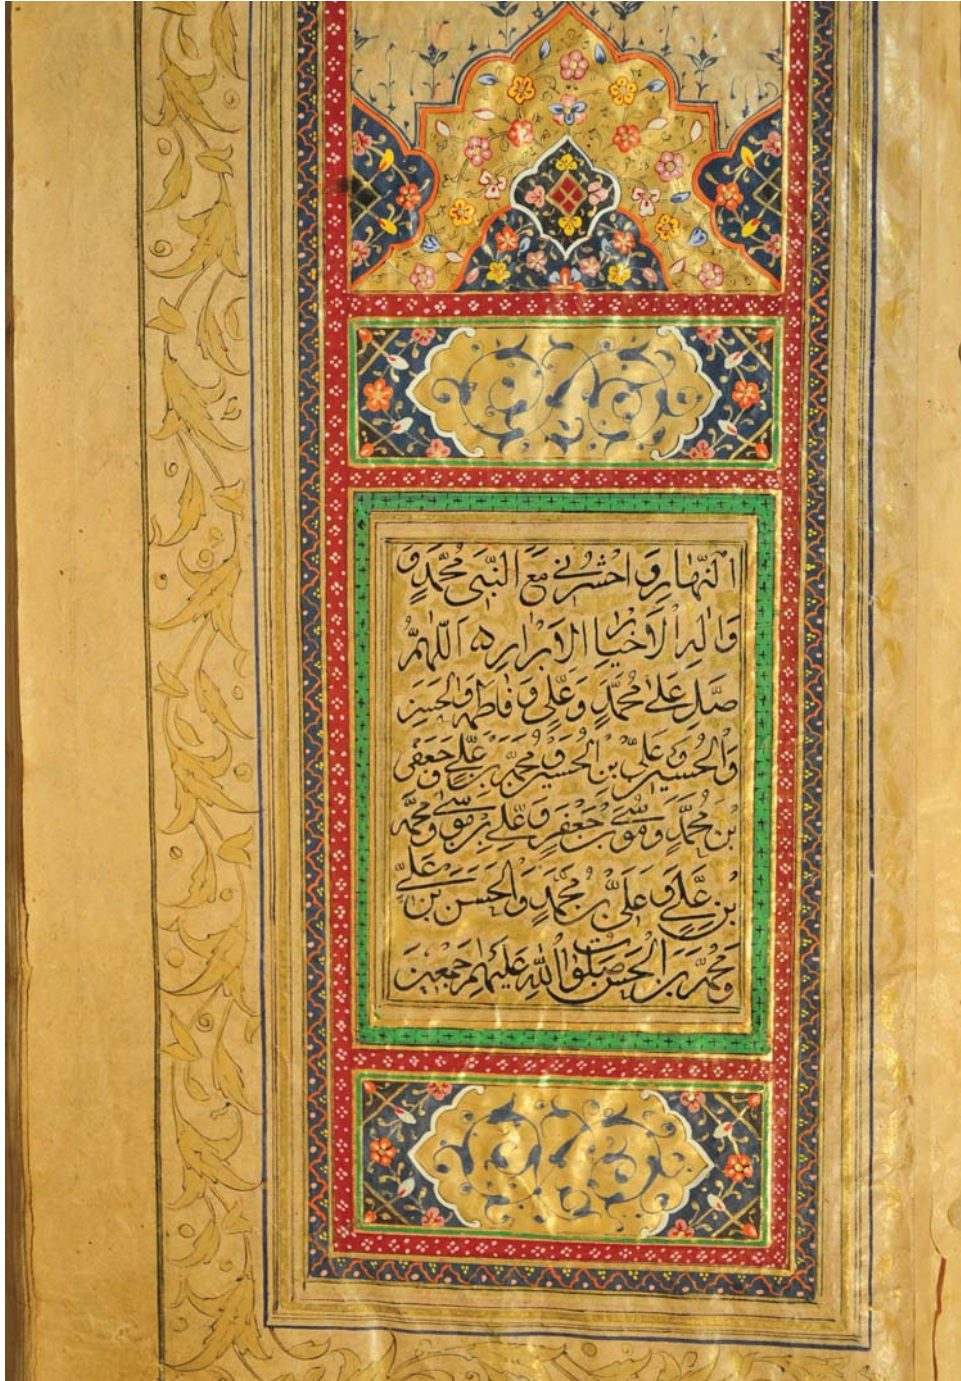 النَّهارِ وَ احْشُرْنی مَعَ النَّبیِّ مُحَمَّدٍ وَ
وَالِهِ الاَخیارِ الاَبْرارِ ه اَللّهُمَّ
صَلِّ عَلی مُحَمَّدٍ وَ عَلِیٍّ وَ فاطِمَه وَالحَسَنِ
وَالحُسینِ وَ عَلِیِّ بْنِ الحُسَینِ وَ مُحَمَّدِ بْنِ عَلِیٍّ وَ جَعْفَرِ
بْنِ مُحَمَّدٍ وَ مُوسیَ بْنِ جَعْفَرٍ وَ عَلِی بْنِ مُوسی وَ مُحَمَّد
بْنِ عَلِیٍّ وَ عَلِیِّ بْنِ مُحَمَّدٍ وَالحَسَنِ بْنِ عَلِیٍّ
وَ مُحَمَّد بْنِ الحَسَنِ صَلَواتُ اللهِ عَلَیهِم جمَعینَ